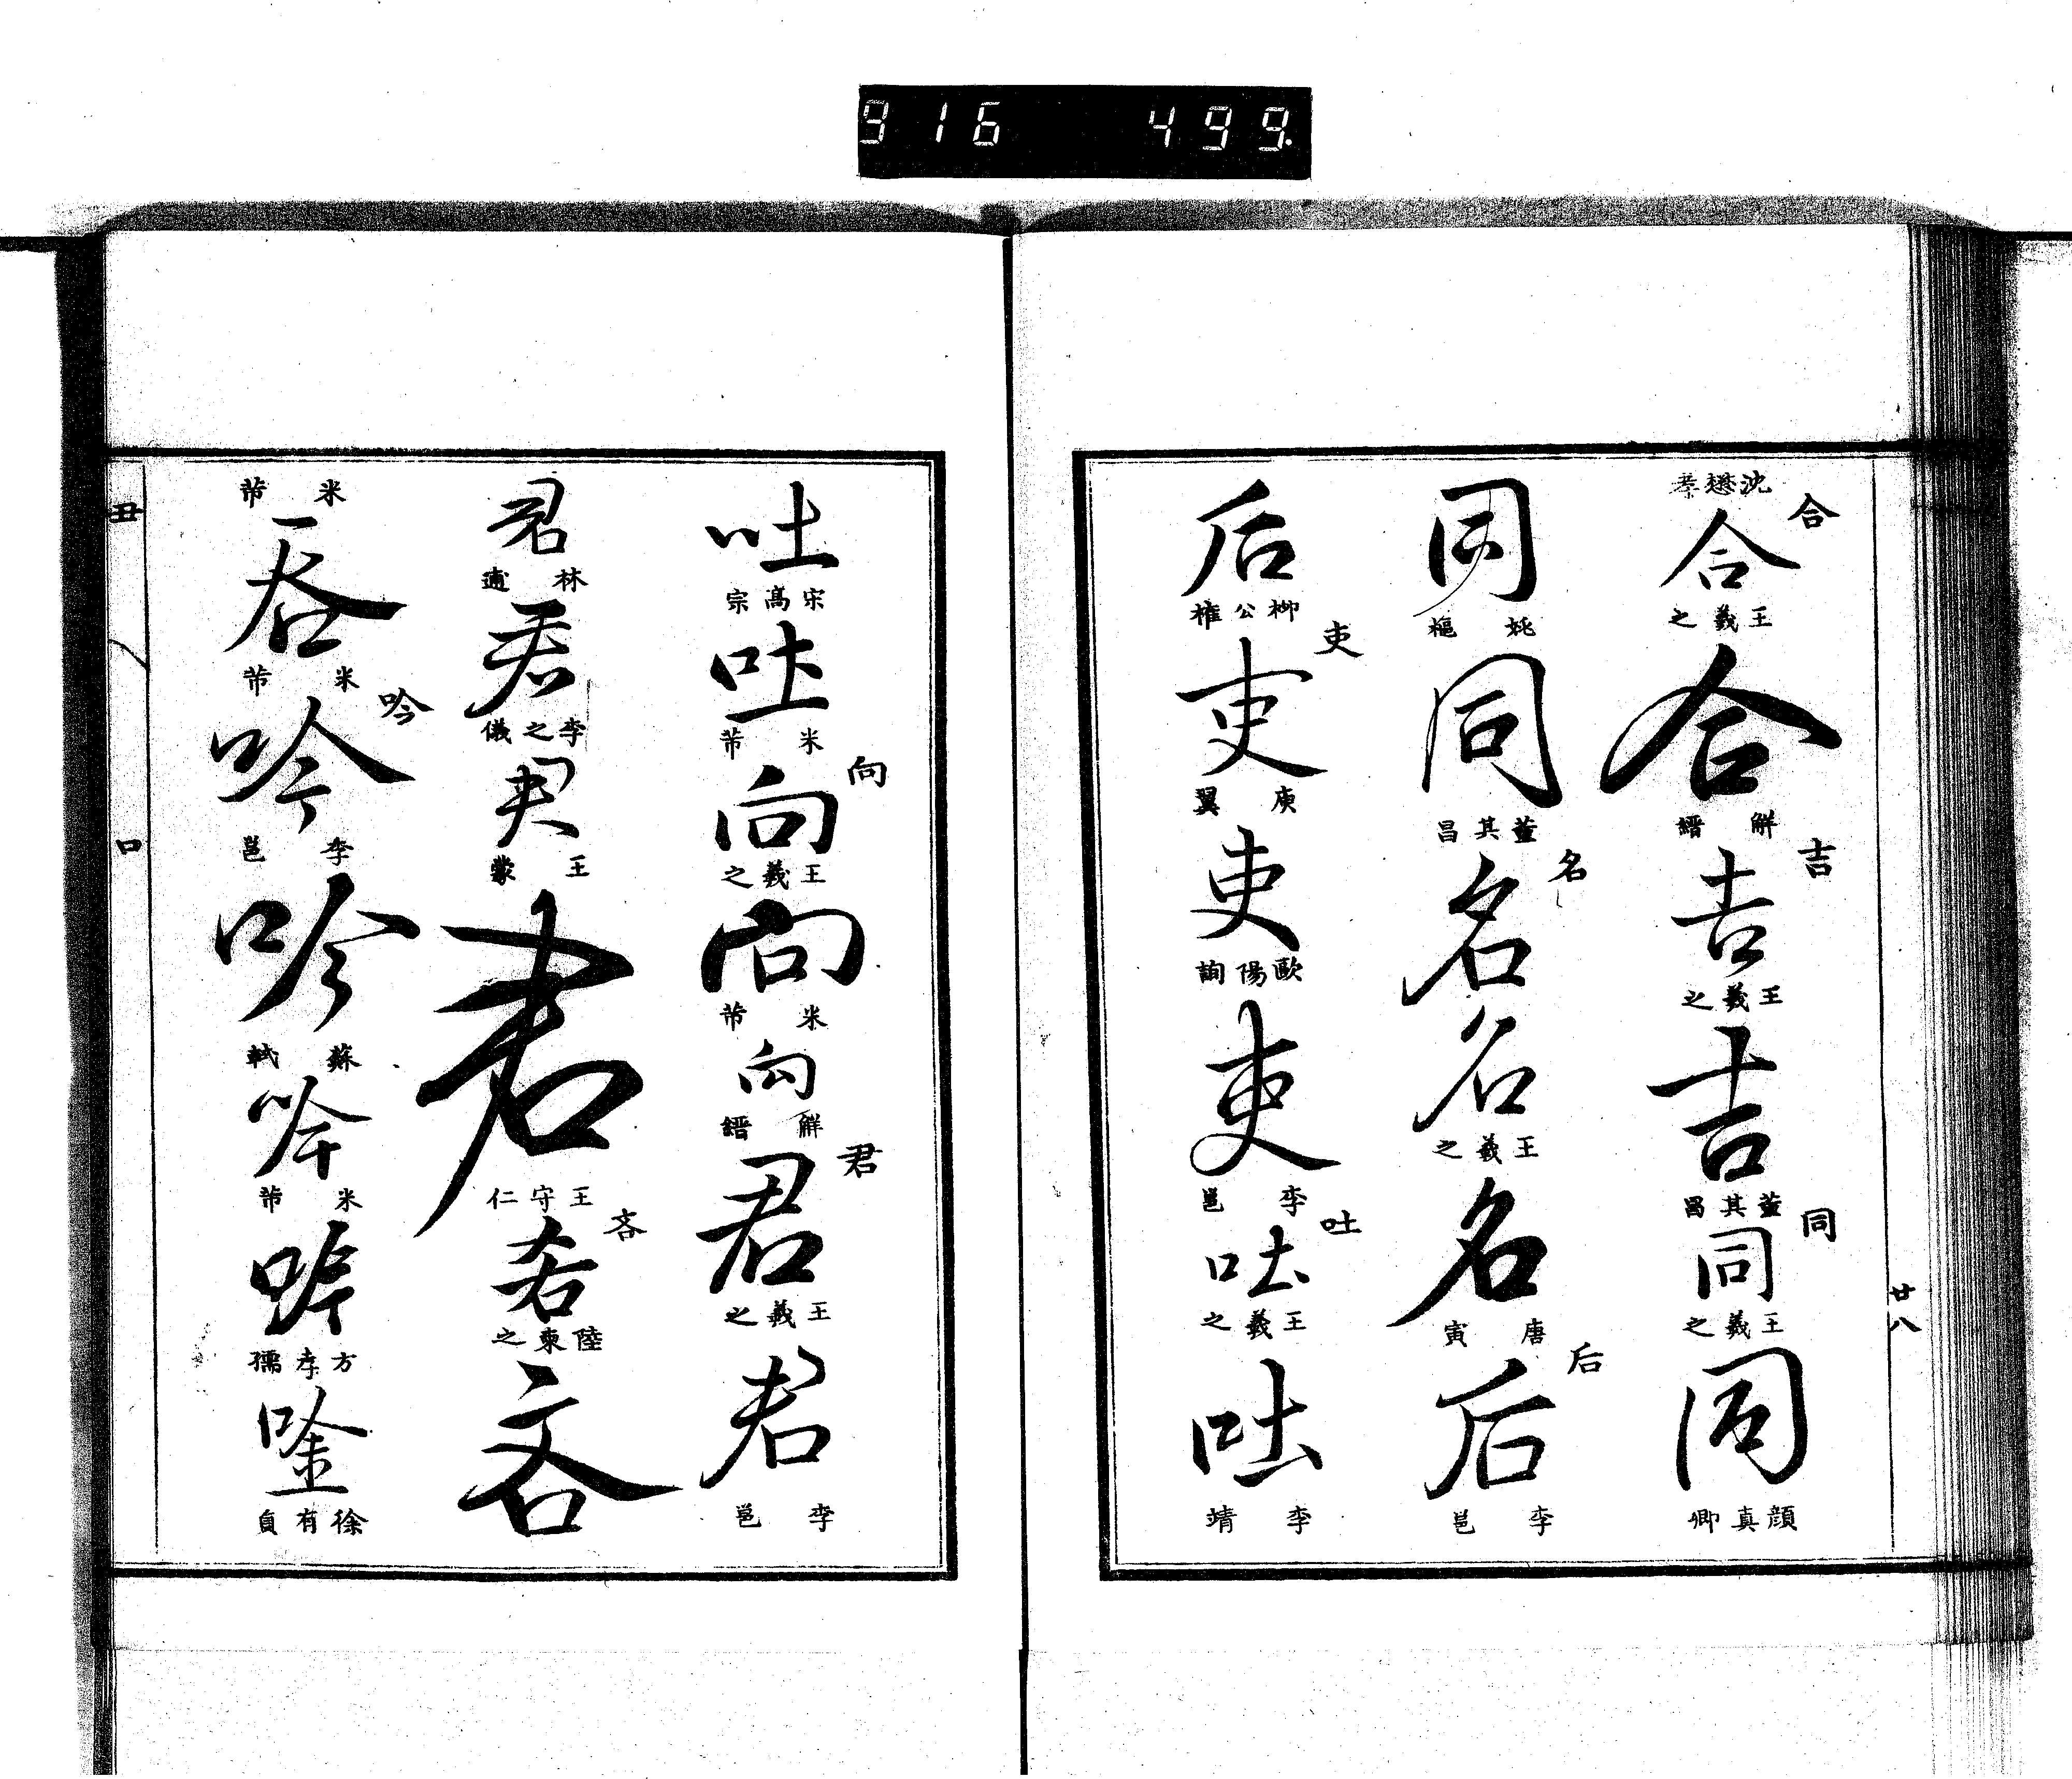 916 499
廿八
沈懋孝
合
合
王羲之
合
解縉
吉
吉
王羲之
吉
董其昌
同
同
王羲之
同
顔真卿
同
姚樞
同
董其昌
名
名
名
王羲之
名
唐寅
后
后
李邕
后
柳公權
吏
吏
庾翼
吏
歐陽詢
吏
李邕
吐
吐
王羲之
吐
李靖
吐
宋高宗
吐
米芾
向
向
王羲之
向
米芾
向
解縉
君
君
王羲之
君
李邕
君
林逋
君
李之儀
君
王蒙
君
王守仁
吝
吝
陸柬之
吝
米芾
吝
米芾
吟
吟
李邕
吟
蘇軾
吟
米芾
吟
方孝孺
唫
徐有貞
丑
口